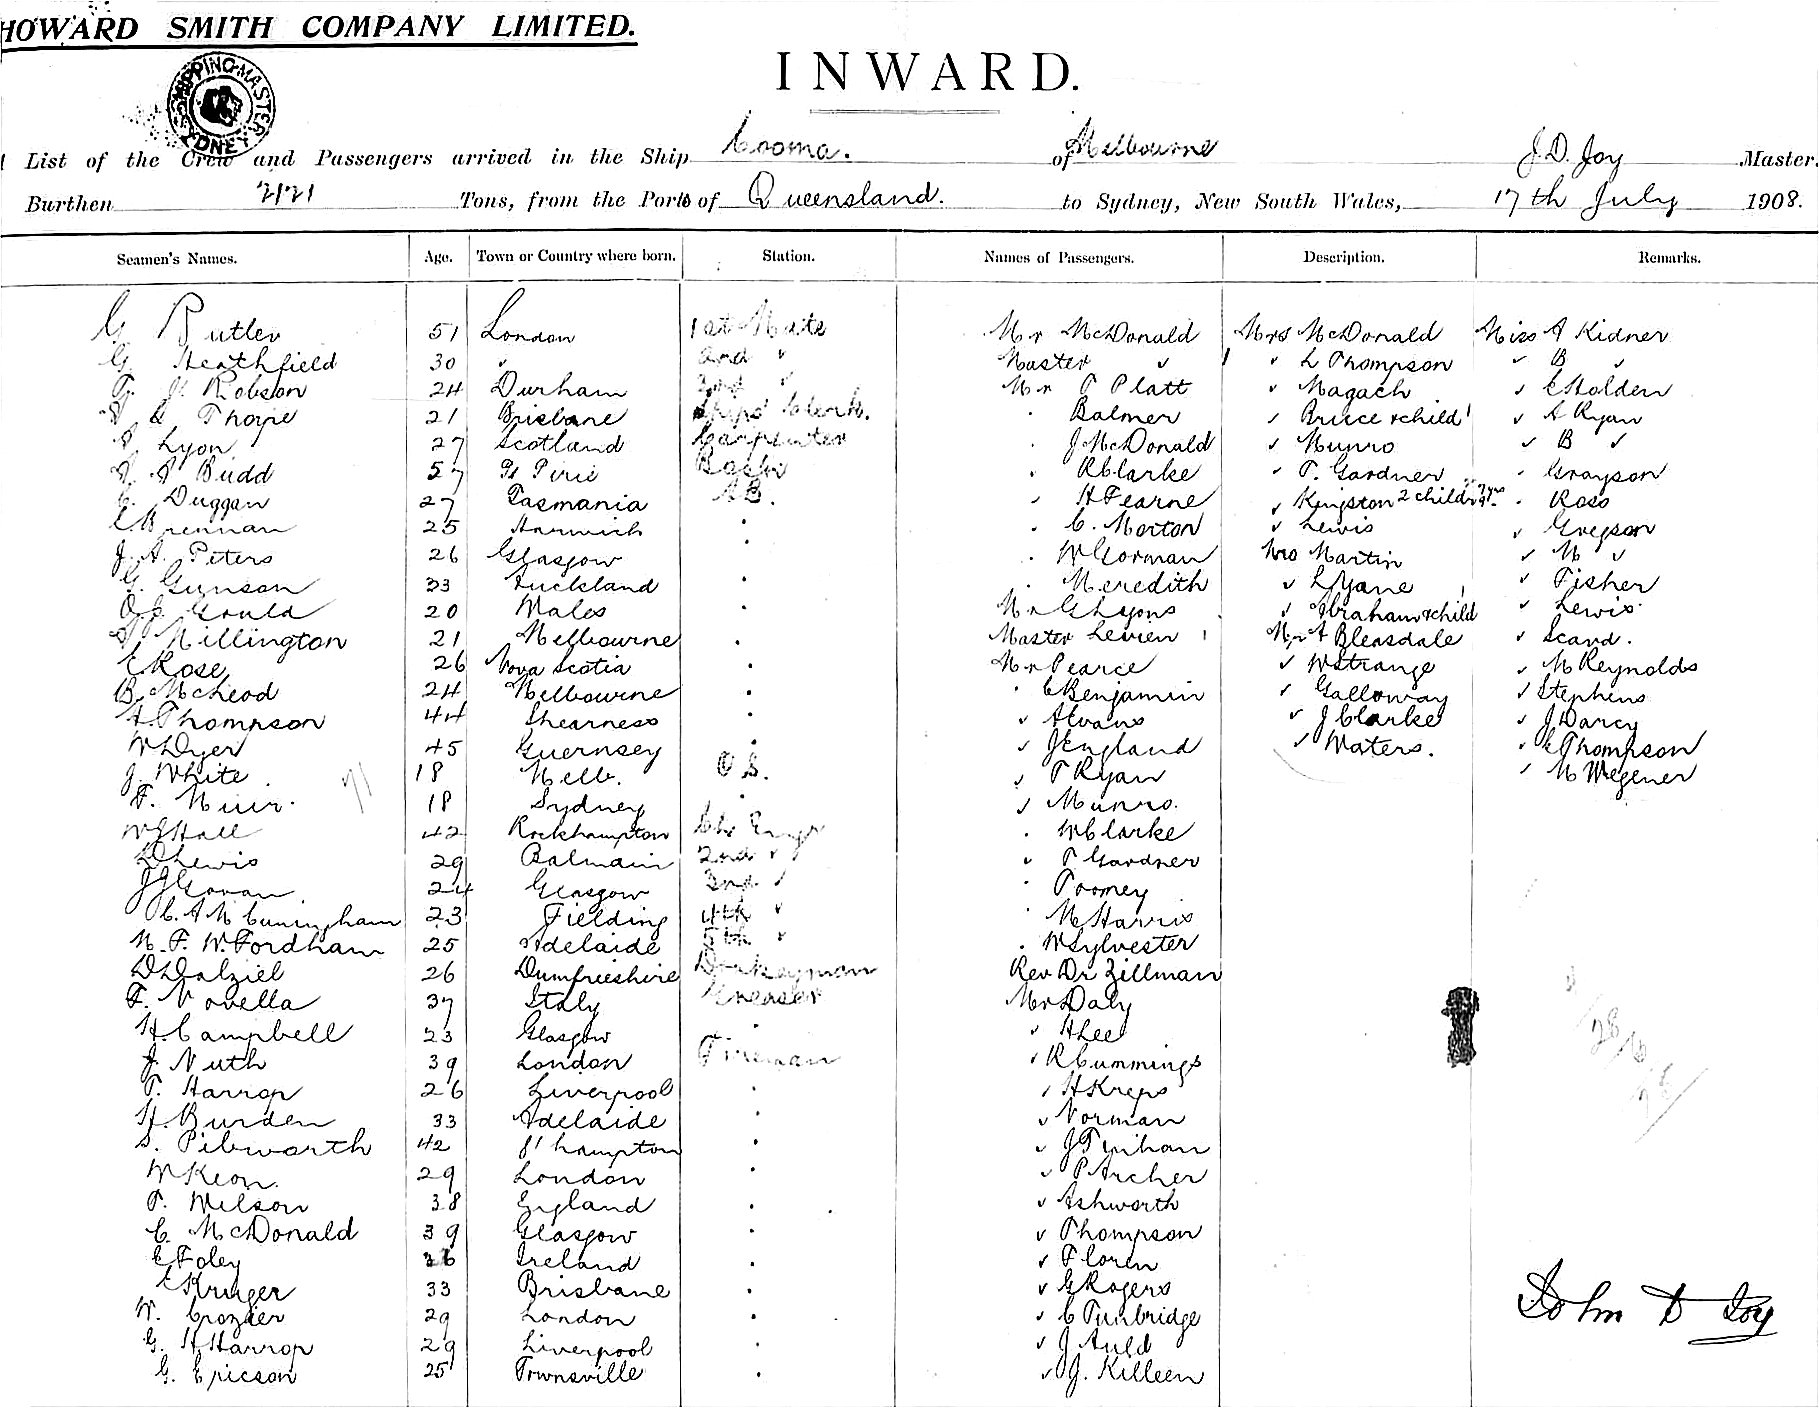 HOWARD SMITH COMPANY LIMITED.
SHIPPING MASTER SYDNEY
INWARD.
List of the Crew and Passengers arrived in the Ship Cooma. of Melbourne J.D. Joy Master.
Burthen Tons, from the Port of Queensland. to Sydney, New South Wales, 17th July 1908.
Seamen's Names. Age. Town or Country where born. Station. Names of Passengers. Description. Remarks.
G Butler 51 London 1st Mate Mr McDonald Mrs McDonald Miss A Kidner
G Heathfield 30 " 2nd " Master " 1 " L Thompson " B "
T. J. Robson 24 Durham 3rd " Mr T Platt " Magach " E Holden
Thorpe 21 Brisbane Ships Clerk. " Balmer " Bruce & child 1 " A Ryan
Lyon 27 Scotland Carpenter " J McDonald " Munro " B "
Budd 57 Pt Pirie " R Clarke " T. Gardner " Grayson
C. Duggan 27 Tasmania A.B. " H Fearne " Kingston 2 children " Ross
E Brennan 25 Harwich " " C. Morton " Lewis " Gregson
J. A. Peters 26 Glasgow " " W Gorman Mrs Martin " M "
G. Gunson 33 Auckland " " Meredith " L Yane 1 " Fisher
Gould 20 Wales " Mr G Lyons " Abraham & child " Lewis
Millington 21 Melbourne " Master Levien 1 Mr A Bleasdale " Scard.
E Rose 26 Nova Scotia " Mr Pearce " W Strange " M Reynolds
B. McLeod 24 Melbourne " " E Benjamin " Galloway " Stephens
A Thompson 44 Shearness " " A Evans " J Clarke " J Darcy
W Dyer 45 Guernsey " " J England " Waters. " E Thompson
J. White 18 Melb. O.S. " T Ryan " M Wegener
F. Muir. 18 Sydney " " Munro.
W E Hall 42 Rockhampton Ch Engr " W Clarke
D Lewis 29 Balmain 2nd " " T Gardner
J G Govan 24 Glasgow 3rd " " Toomey
C. A M Cuningham 23 Fielding 4th " " M Harris
N. F. W. Fordham 25 Adelaide 5th " " W Sylvester
D Dalziel 26 Dumfrieshire Donkeyman Rev Dr Zillman
F. Novella 37 Italy Greaser Mr Daly
H. Campbell 23 Glasgow " " H Lee
J. Nuth 39 London Fireman " R Cummings
T. Harrop 26 Liverpool " " H Kreps
H. Burden 33 Adelaide " " Norman
S. Pibworth 42 S'hampton " " J Tinhan
W Keon. 29 London " " P Archer
T. Wilson 38 England " " Ashworth
C. McDonald 39 Glasgow " " Thompson
E Foley 36 Ireland " " Floren
E Kruger 33 Brisbane " " G Rogers
W. Crozier 29 London " " C Tunbridge
G. H Harrop 29 Liverpool " " J Auld
G. Ericson 25 Townsville " " J. Killeen
John D Joy